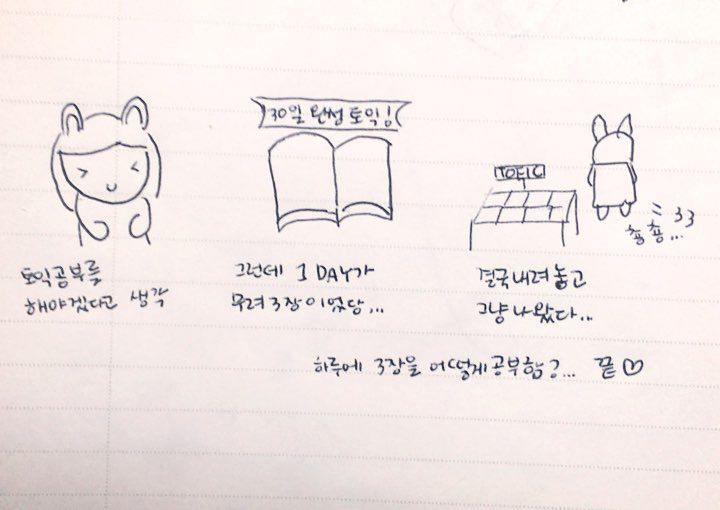 30일 완성 토익!
TOEIC
=33
총총...
토익공부를
해야겠다고 생각
그런데 1 DAY가
무려 3장이었당...
결국 내려놓고
그냥 나왔다..
하루에 3장을 어떻게 공부함?... 끝♡